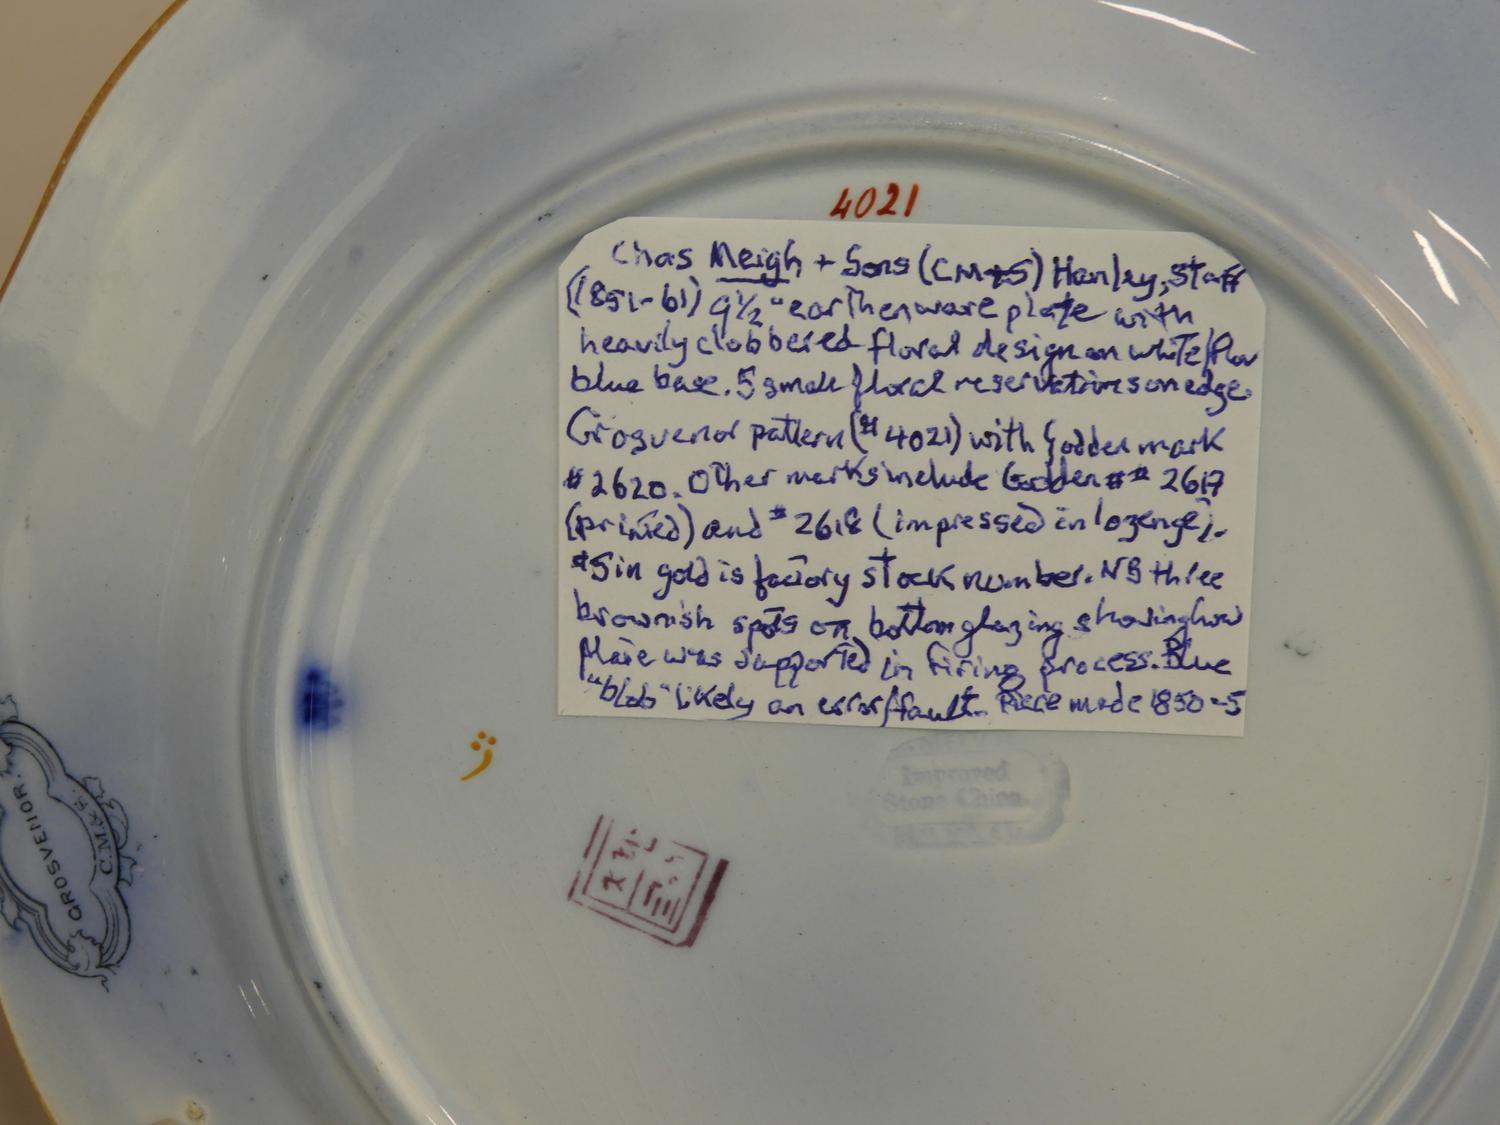 4021
Chas Meigh + Sons (CM+S) Hanley, Staff
(1851-61) 9½" earthenware plate with
heavily clobbered floral design on white/flow
blue base. 5 small floral reservations on edge.
Grosvenor pattern (#4021) with Godden mark
#2620. Other marks include Godden ## 2617
(printed) and #2618 (impressed in lozenge).
#5 in gold is factory stock number. NB three
brownish spots on bottom glazing showing how
plate was supported in firing process. Blue
"blob" likely an error/fault. Piece made 1850-5
Improved
Stone China.
GROSVENOR.
C.M.&S.